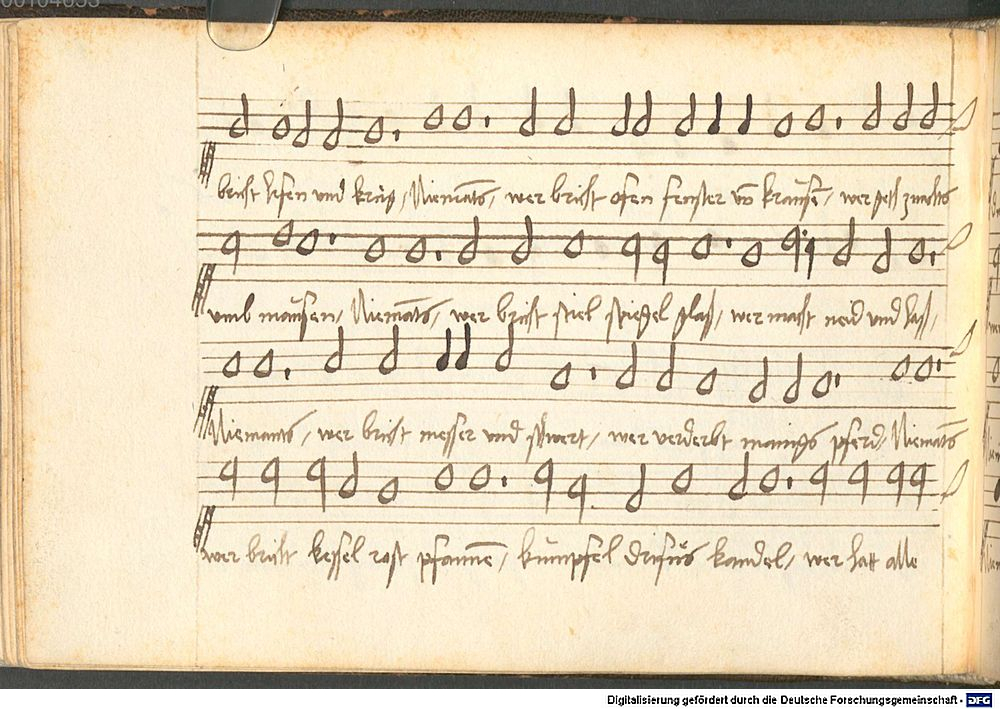 00104655
bricht hefen und krüg / Niemāts / wer bricht ofen fenster vn̄ krausen / wer zundts
umb mausen / Niemāts / wer bricht stiel spiegel glas / wer macht neid und hass /
Niemants / wer bricht messer und schwert / wer verderbt manigs pferd / Niemāts
wer bricht kessel rost pfannen / kumpfel drifůs kandel / wer hatt alle
Digitalisierung gefördert durch die Deutsche Forschungsgemeinschaft - DFG